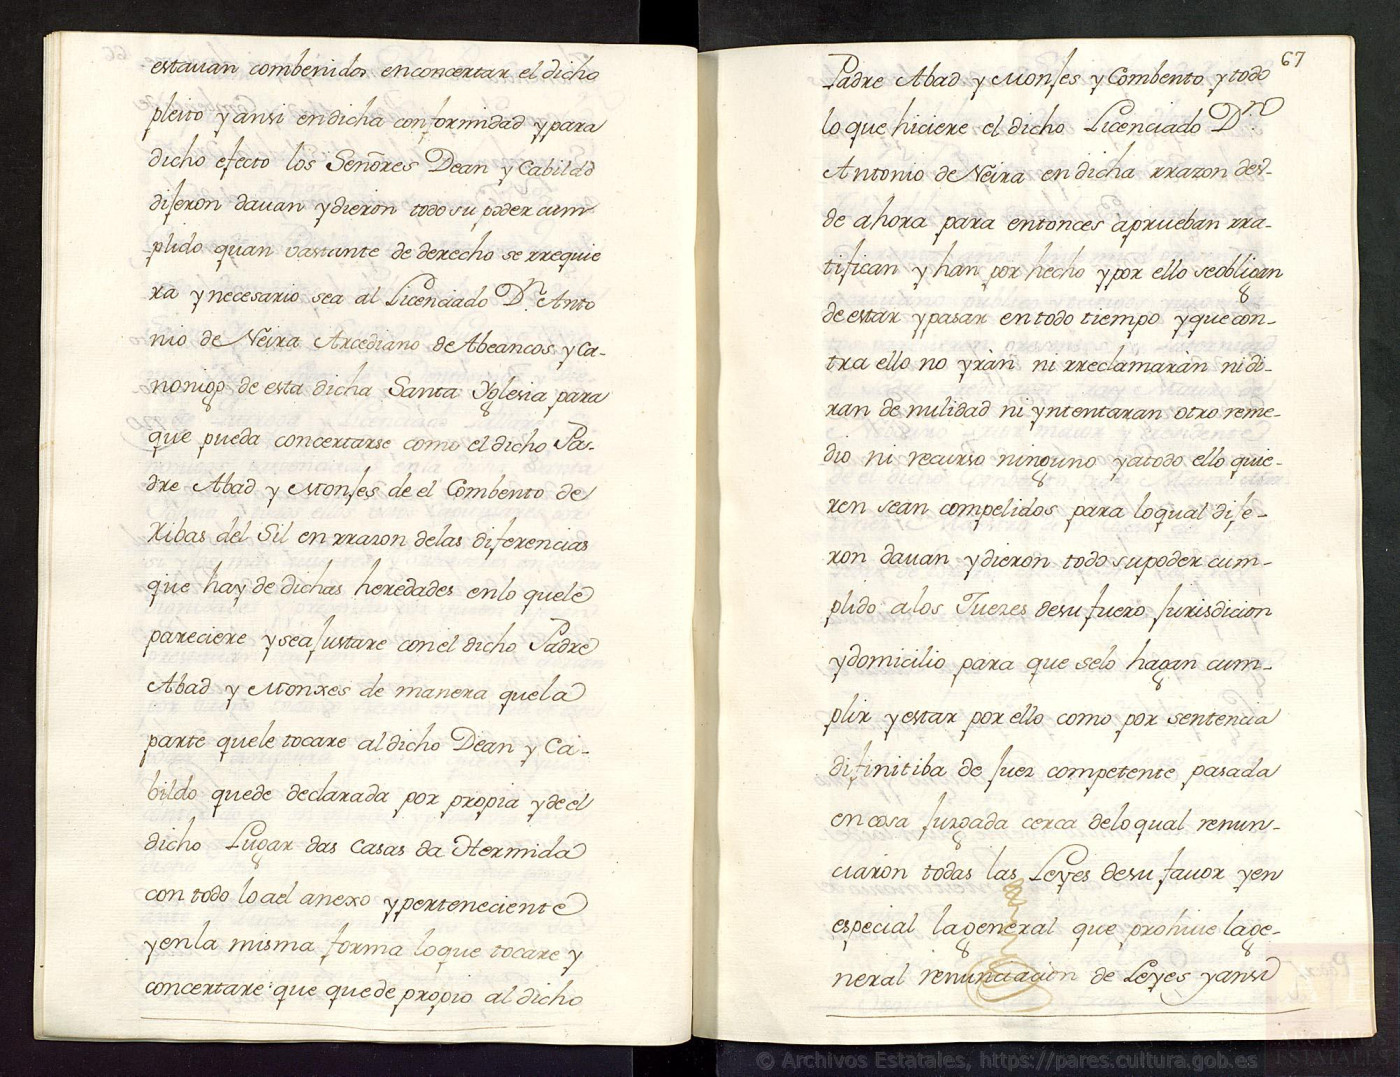 estavan combenidos enconcertar el dicho
pleito y ansi endicha conformidad y para
dicho efecto los Señores Dean y Cabildo
diferon davan y dieron todo su poder cum
plido quan vastante de derecho se rrequie
ra y necesario sea al Licenciado Dn. Anto
nio de Neira Arcediano de Abeancos y Ca-
nonigo de esta dicha Santa Yglesia para
que pueda concertarse como el dicho Pa-
dre Abad y Monjes de el Combento de
Ribas del Sil en rrazon delas diferencias
que hay de dichas heredades enlo quele
pareciere y seajustare con el dicho Padre
Abad y Monxes de manera quela
parte quele tocare al dicho Dean y Ca-
bildo quede declarada por propia y de el
dicho Lugar das Casas da Hermida
con todo lo ael anexo y perteneciente
y enla misma forma loque tocare y
concertare que quede propio al dicho
67
Padre Abad y Monjes y Combento y todo
lo que hiciere el dicho Licenciado Dn.
Antonio de Neira en dicha rrazon des-
de ahora para entonces aprueban rra-
tifican y han por hecho y por ello seobligan
de estar y pasar entodo tiempo y que con-
tra ello no yràn ni rreclamaràn ni di-
ran de nulidad ni yntentaran otro reme-
dio ni recurso ninguno y atodo ello quie-
ren sean compelidos para loqual dife-
ron davan y dieron todo su poder cum-
plido alos Juezes desu fuero Jurisdicion
y domicilio para que selo hagan cum-
plir y estar por ello como por sentencia
difinitiba de Juez competente pasada
en cosa Juzgada cerca delo qual renun-
ciaron todas las Leyes desu favor y en
especial la general que prohive la ge-
neral renunciacion de Leyes y ansi
© Archivos Estatales, https://pares.cultura.gob.es